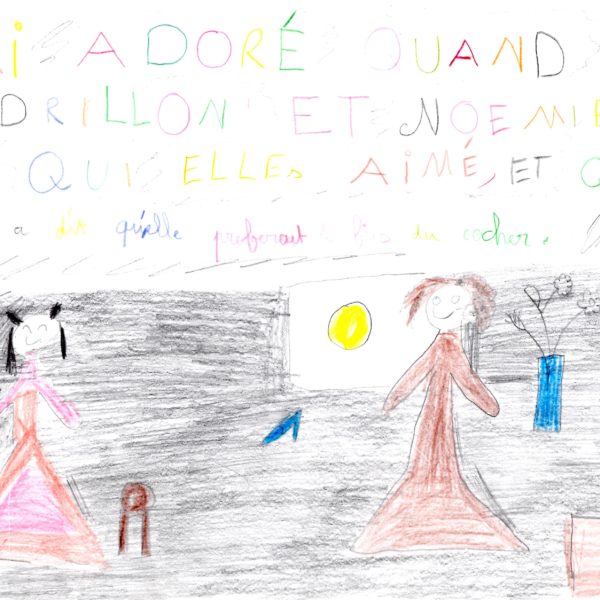 i ADORÉ QUAND
DRILLON ET NOEMIE
QUI ELLES AIMÉ, ET
a dit qu'elle preferait le fils du cocher.